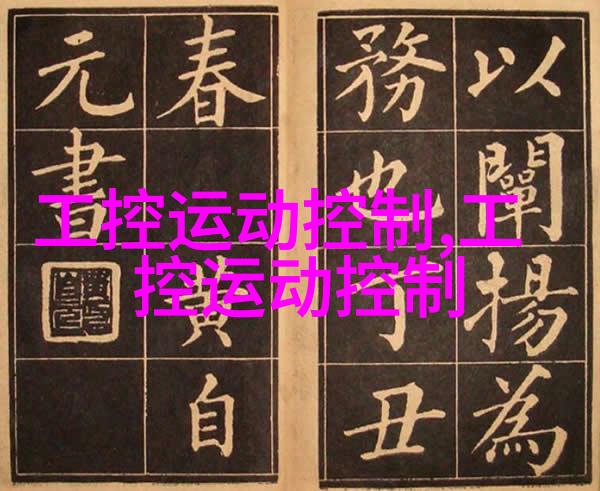 工控运动控制,工
控运动控制
以闡揚為
務也丁丑
春 黃自
元書